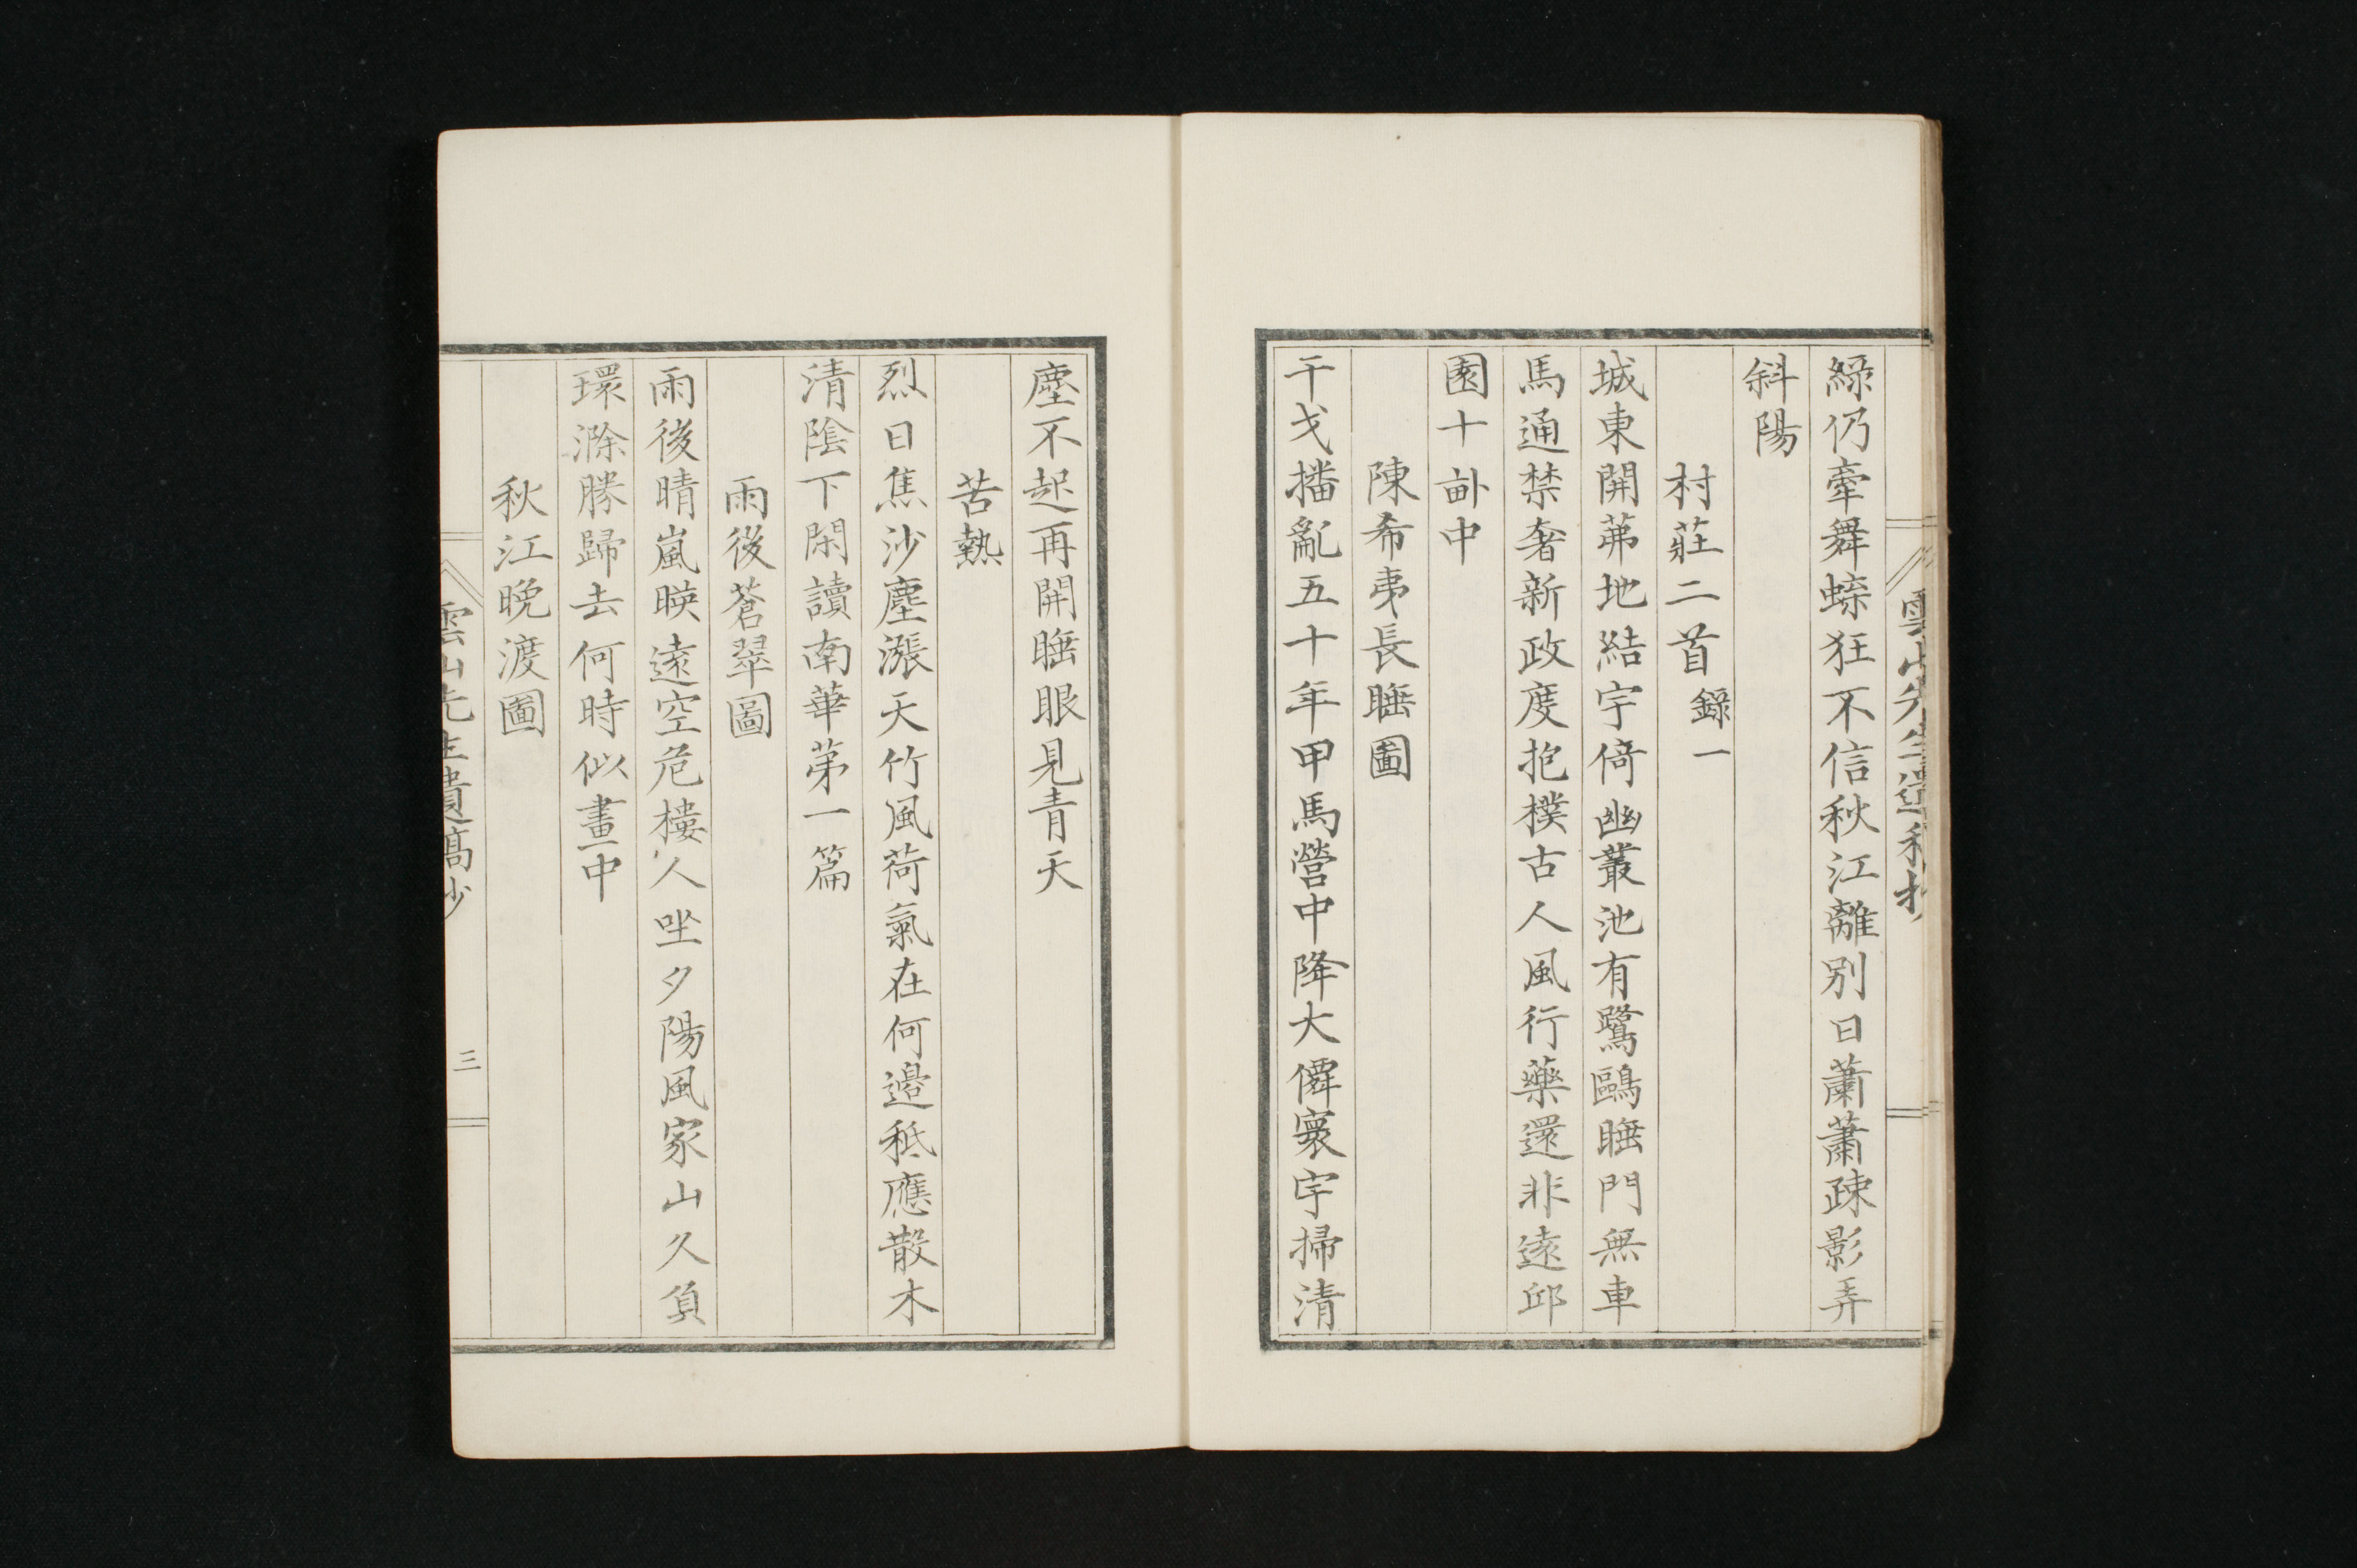 綠仍牽舞蝶狂不信秋江離別日蕭蕭疎影弄
斜陽
村莊二首錄一
城東開苐地結宇倚幽叢池有鷺鷗睡門無車
馬通禁奢新政度抱樸古人風行藥還非遠邱
園十畝中
陳希夷長睡圖
干戈擾亂五十年甲馬營中降大僊寰宇掃清
塵不起再開睡眼見青天
苦熱
烈日焦沙塵漲天竹風荷氣在何邊秪應散木
清陰下閑讀南華苐一篇
雨後蒼翠圖
雨後晴嵐暎遠空危樓人坐夕陽風家山久負
環滁勝歸去何時似畫中
秋江晚渡圖
雲山先生遺稿抄
三